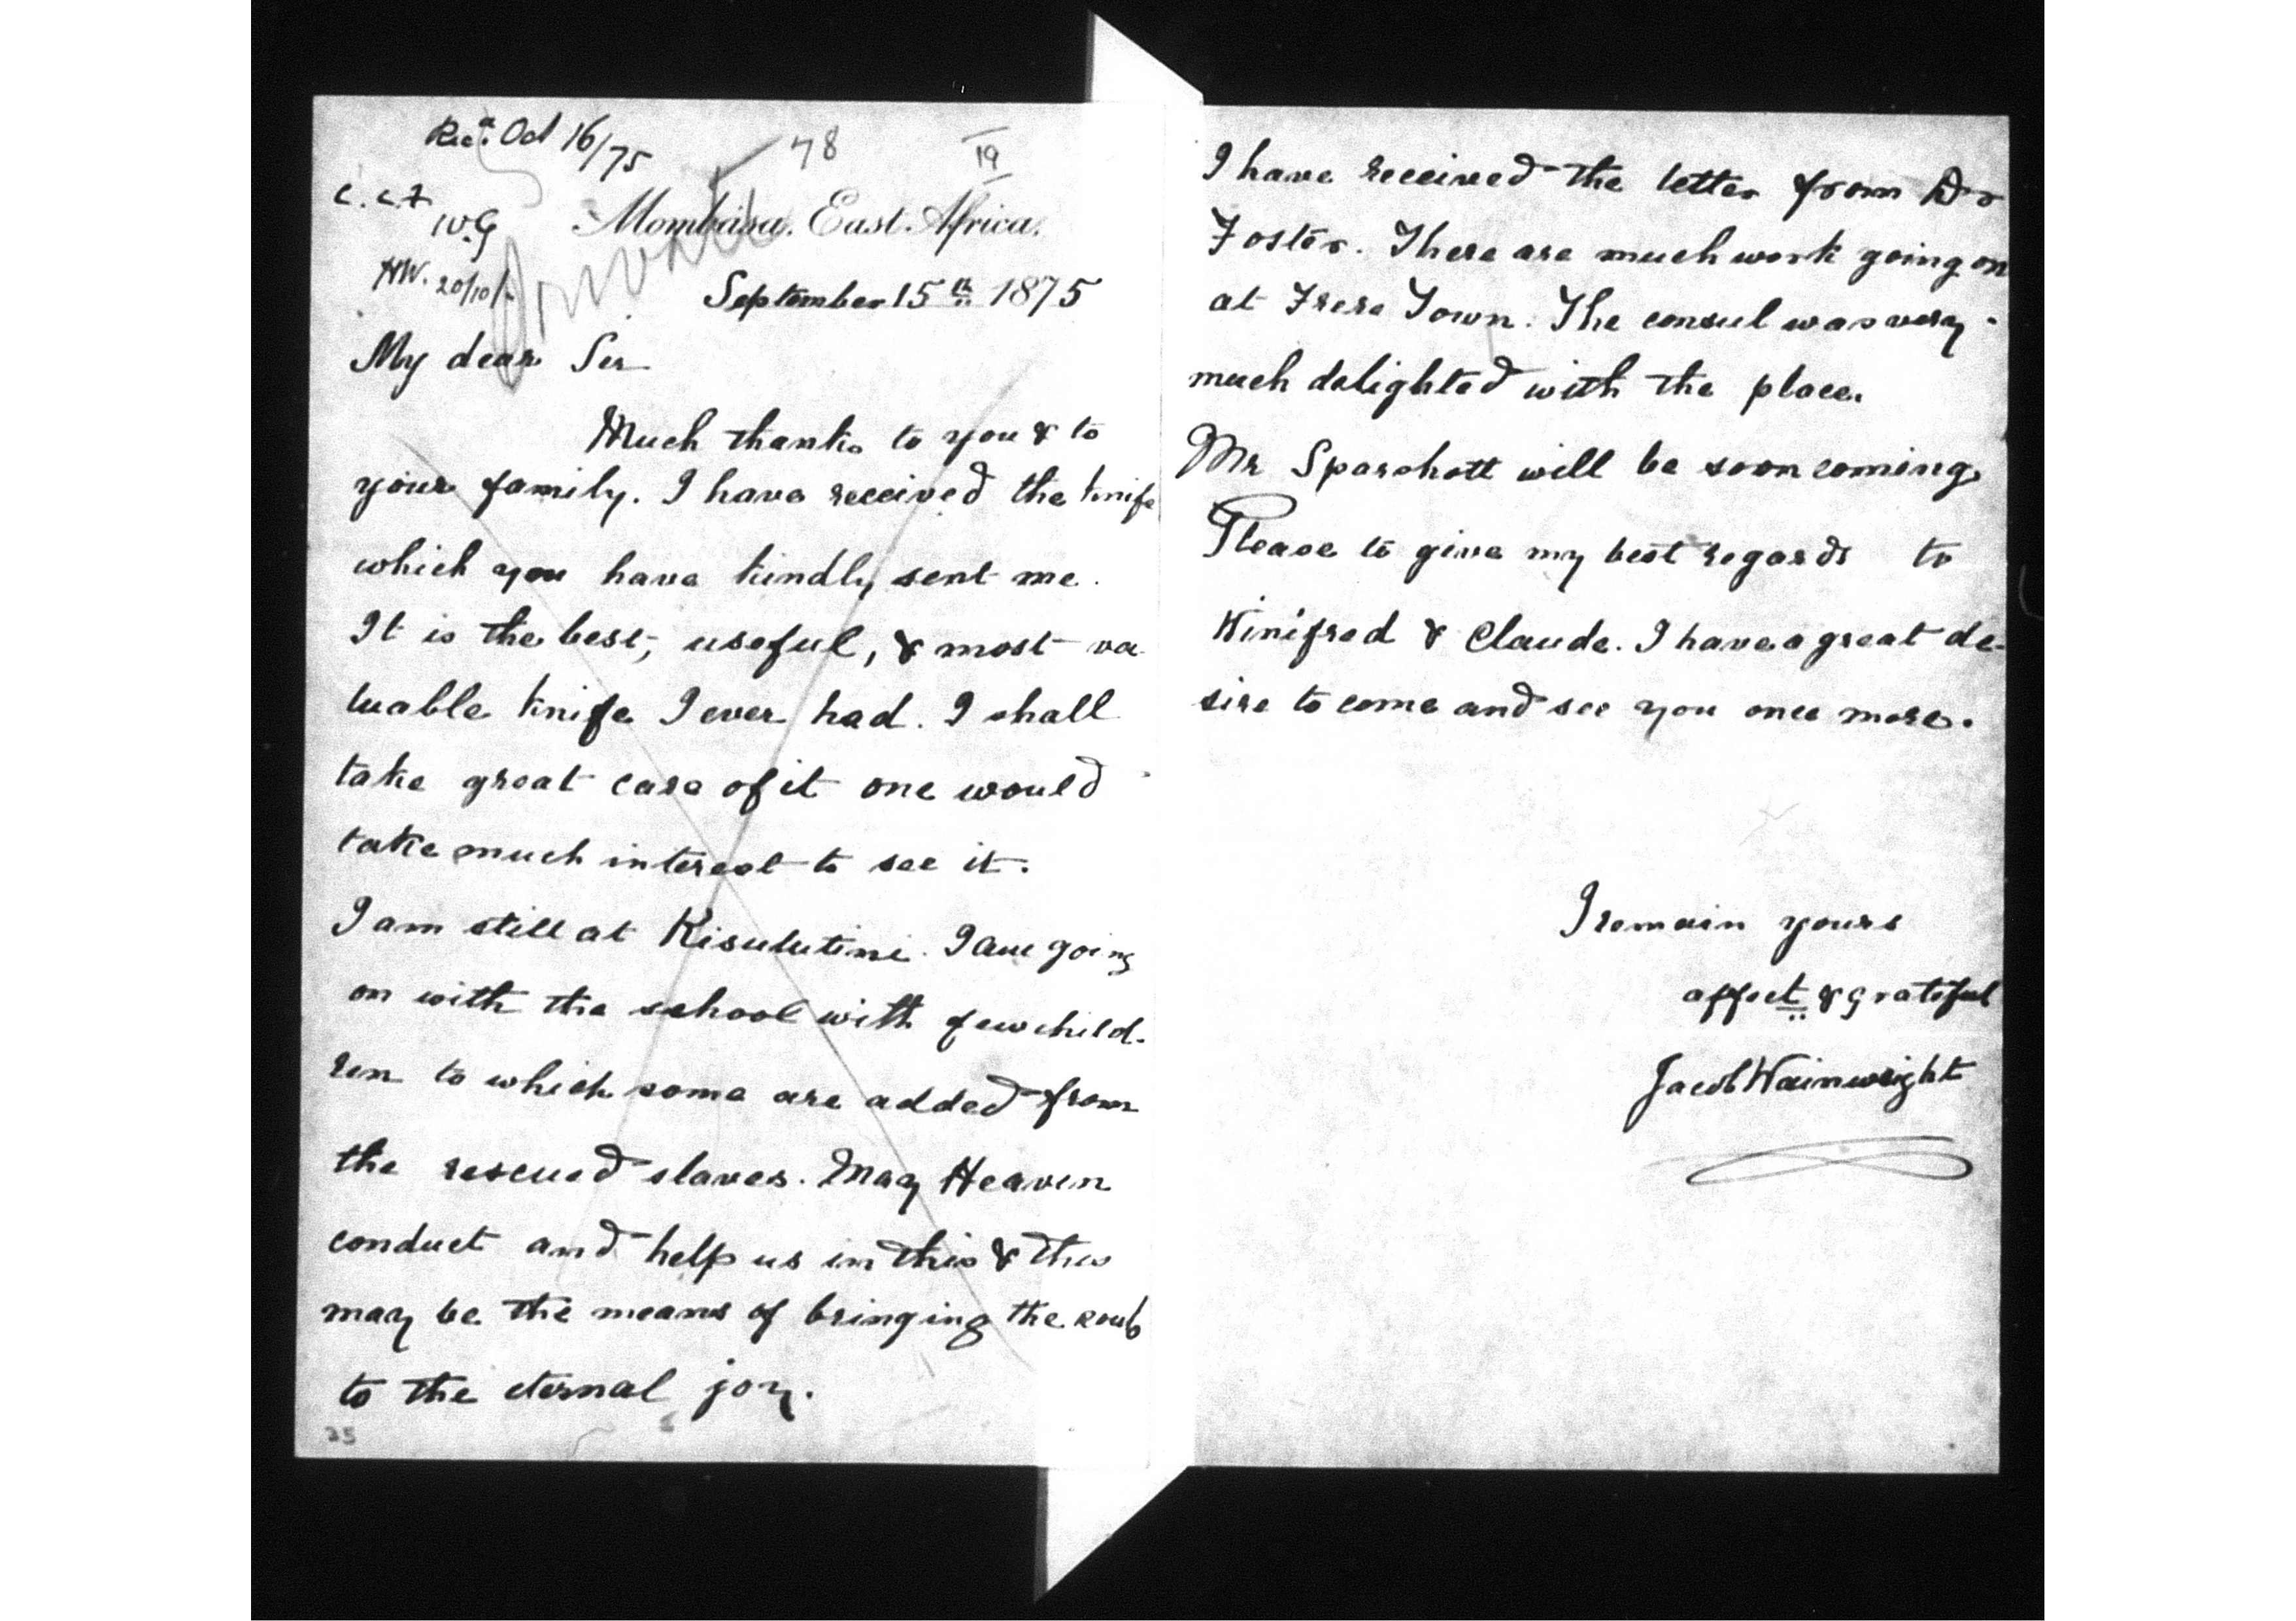 Recd. Oct 16/75
78
19
C.C.F
W.G
HW. 20/10/
Private
Mombasa. East. Africa.
September 15th 1875
My dear Sir
Much thanks to you & to
your family. I have received the knife
which you have kindly sent me.
It is the best, useful, & most va
luable knife I ever had. I shall
take great care of it one would
take much interest to see it.
I am still at Kisulutini. I am going
on with the school with few child-
ren to which some are added from
the rescued slaves. May Heaven
conduct and help us in this & this
may be the means of bringing the souls
to the eternal joy.
25
I have received the letter from Dr
Foster. There are much work going on
at Frere Town. The consul was very
much delighted with the place.
Mr Sparshott will be soon coming.
Please to give my best regards to
Kinifred & Claude. I have a great de-
sire to come and see you once more.
I remain yours
affect & grateful
Jacob Wainwright